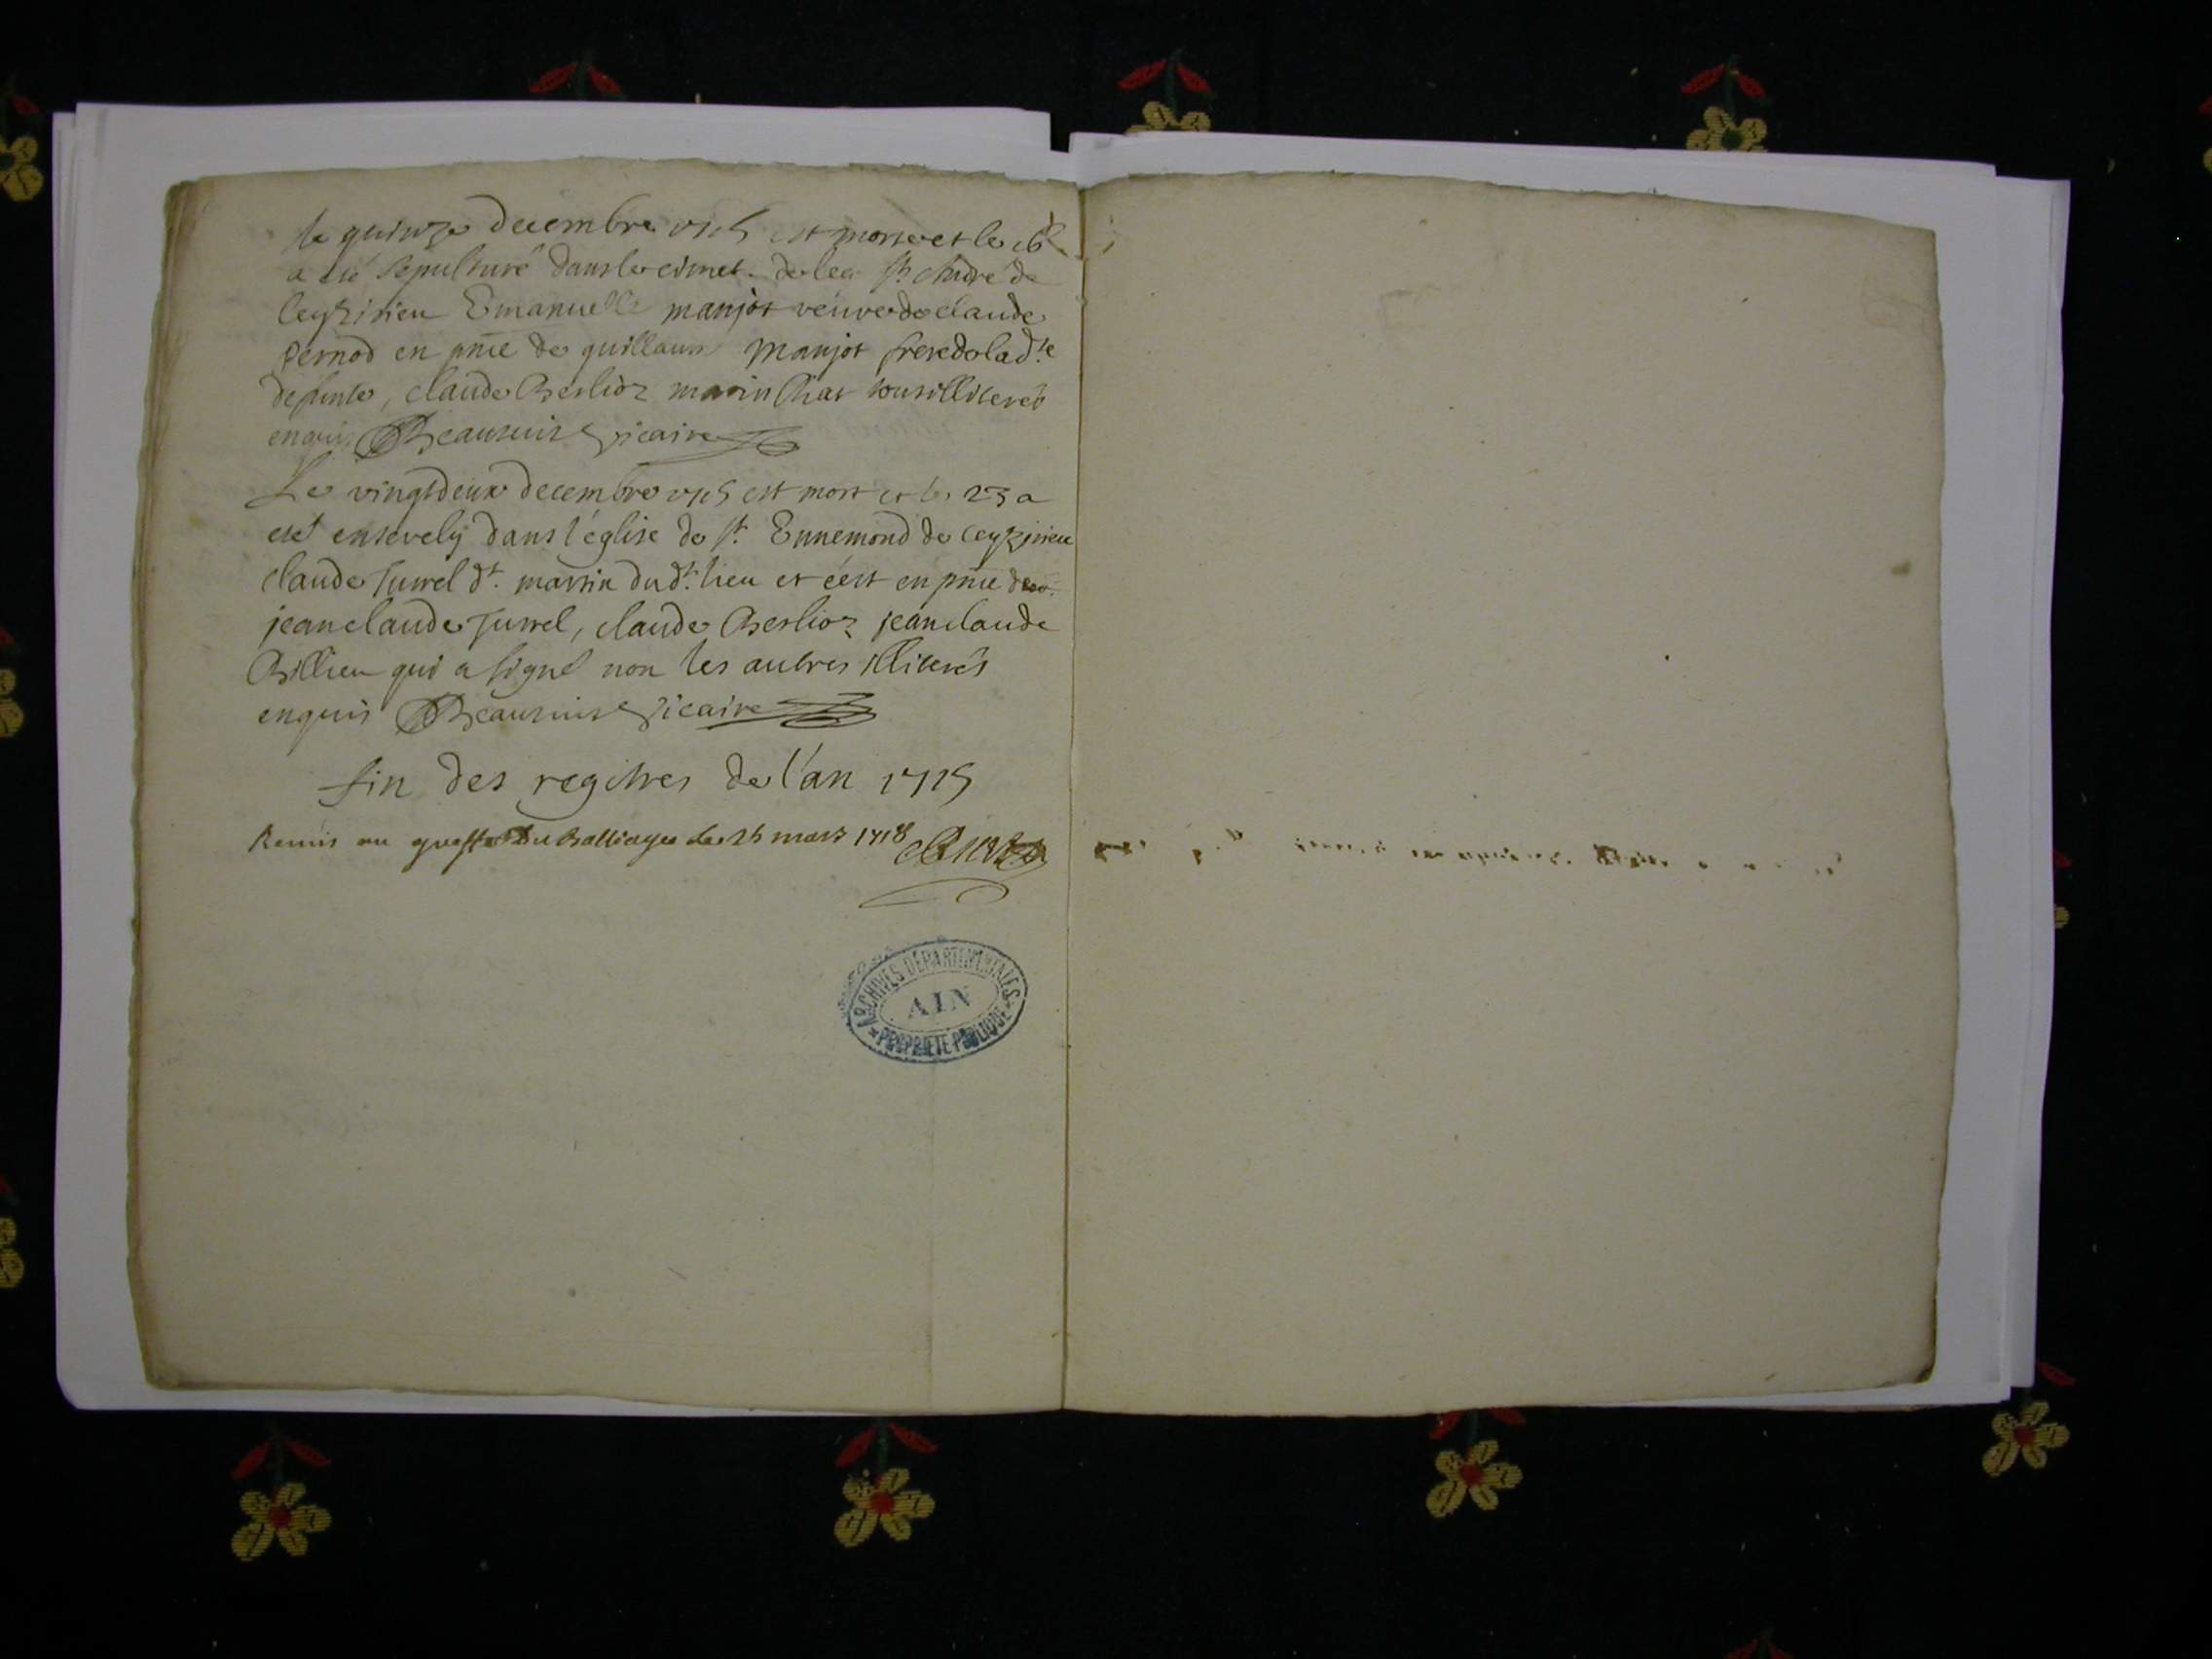 le quinze decembre 1715 est morte et le 16
a été sepulturé dans le cimet. de St. André de
Ceyzirieu Emanuelle manjot veuve de claude
Pernod en pnce de guillaume manjot frere de lad.te
defunte, claude Berlioz tous illiterés
enquis Beau Vicaire
Le vingt deux decembre 1715 est mort et le 23 a
eté ensevely dans l'église de St. Ennemond de Ceyzirieu
claude Turrel dt. martin dud.t lieu et c'est en pnce de
jean claude Turrel, claude Berlioz jean claude
Billieu qui a signé non les autres illiterés
enquis Beau Vicaire
fin des regitres de l'an 1715
Remis au greffe Du Balliage le 26 mars 1718
ARCHIVES DÉPARTEMENTALES
AIN
PROPRIÉTÉ PUBLIQUE